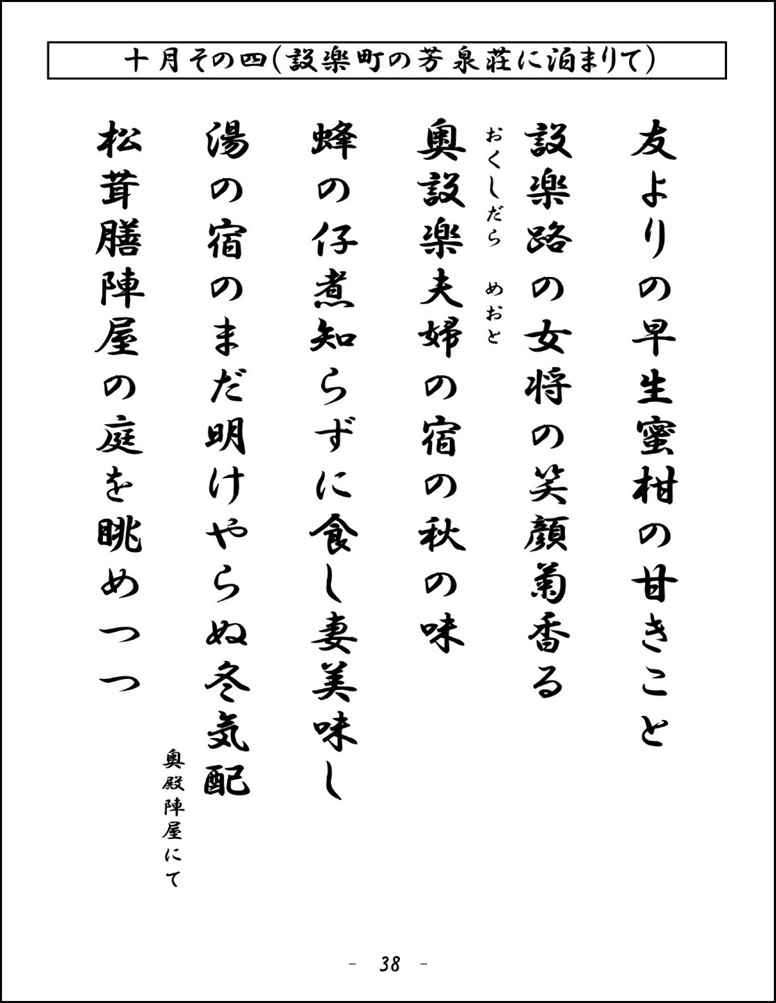 十月その四(設楽町の芳泉荘に泊まりて)
友よりの早生蜜柑の甘きこと
設楽路の女将の笑顔菊香る
おくしだら めおと
奥設楽夫婦の宿の秋の味
蜂の仔煮知らずに食し妻美味し
湯の宿のまだ明けやらぬ冬気配
奥殿陣屋にて
松茸膳陣屋の庭を眺めつつ
- 38 -